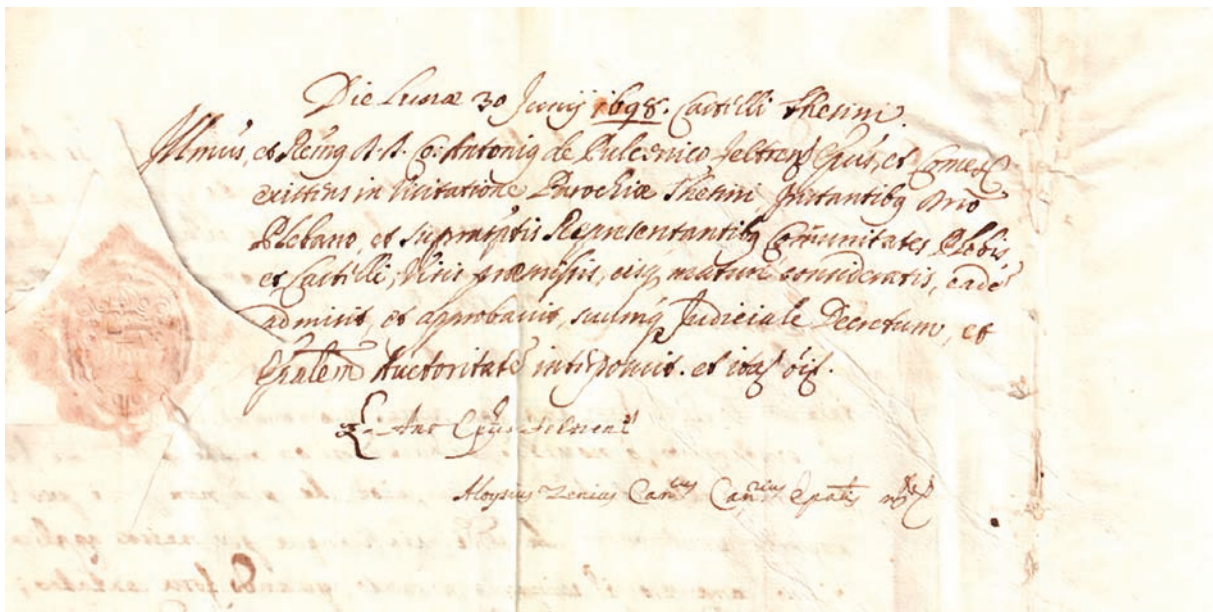 Die Lunæ 30 Junij 1698. Castelli Thesini.
Illmus, et Reūng D. D. Co: Antonig de Pulcenico Feltrens̄ Epūs, et Comes &
existens in visitatione Parochiæ Thesini, Instantibg Dnō
Plebano, et suprascriptis Representantibg Comunitates Plebis,
et Castelli, Visis præmissis, eisq̄ mature consideratis, eadē
admisit, et approbavit, suumq̄ Judiciale Decretum, et
Epālem Auctoritatē interposuit. et ita
Ant Epūs Feltrens̄
Aloysius Zenius Can.cus Can.rius Epālis